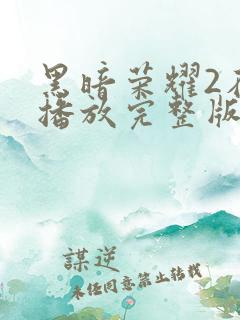 黑暗荣耀2
播放完整版
謀逆
未经同意禁止转载